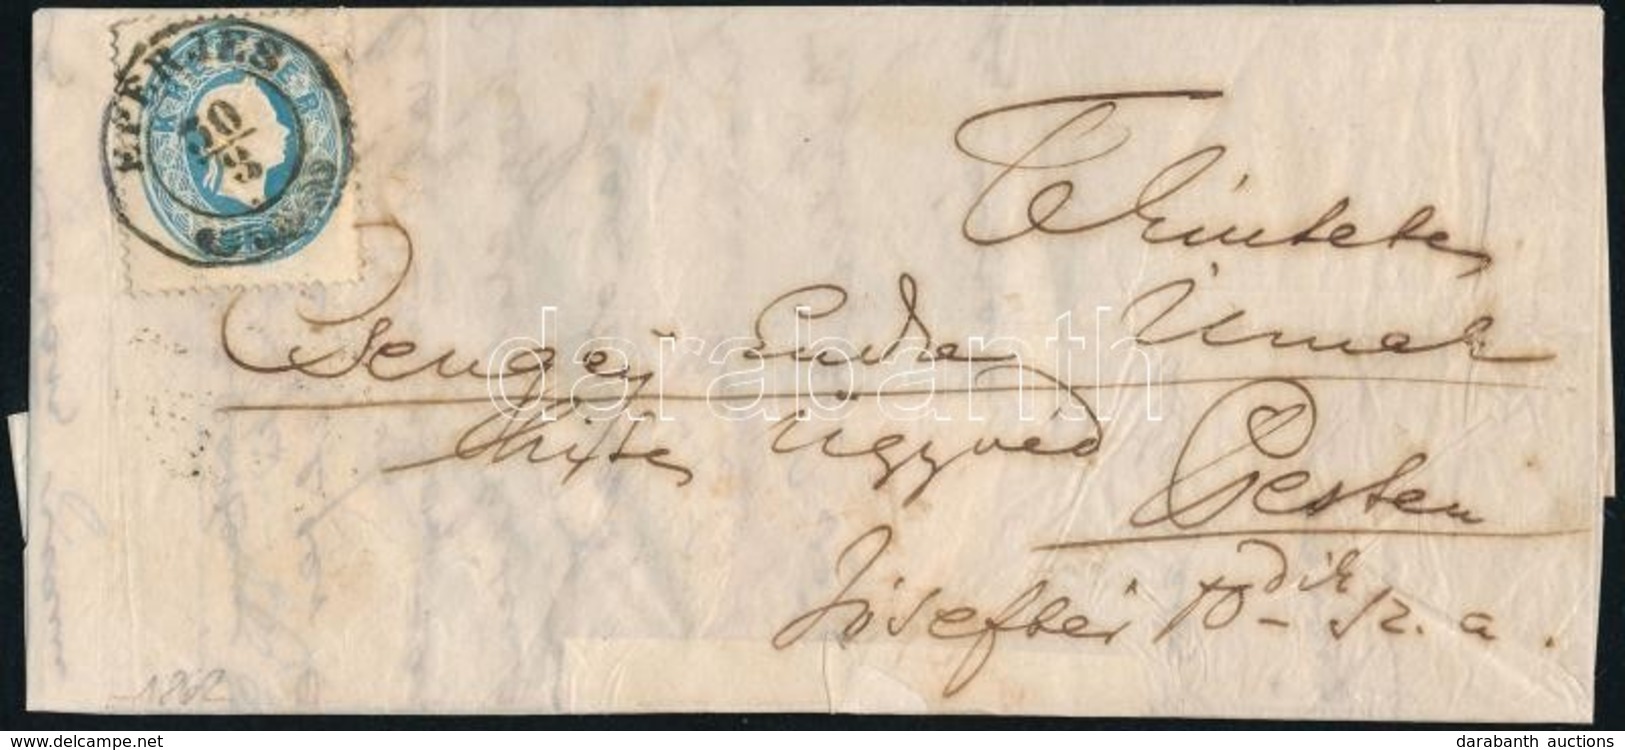 EPERJES
KREUZER
30/3
Tekintetes
Csengey Endre Úrnak
hites ügyvéd
Pesten
Józseftér 10dik sz. a.
1862
darabanth
www.delcampe.net
darabanth auctions